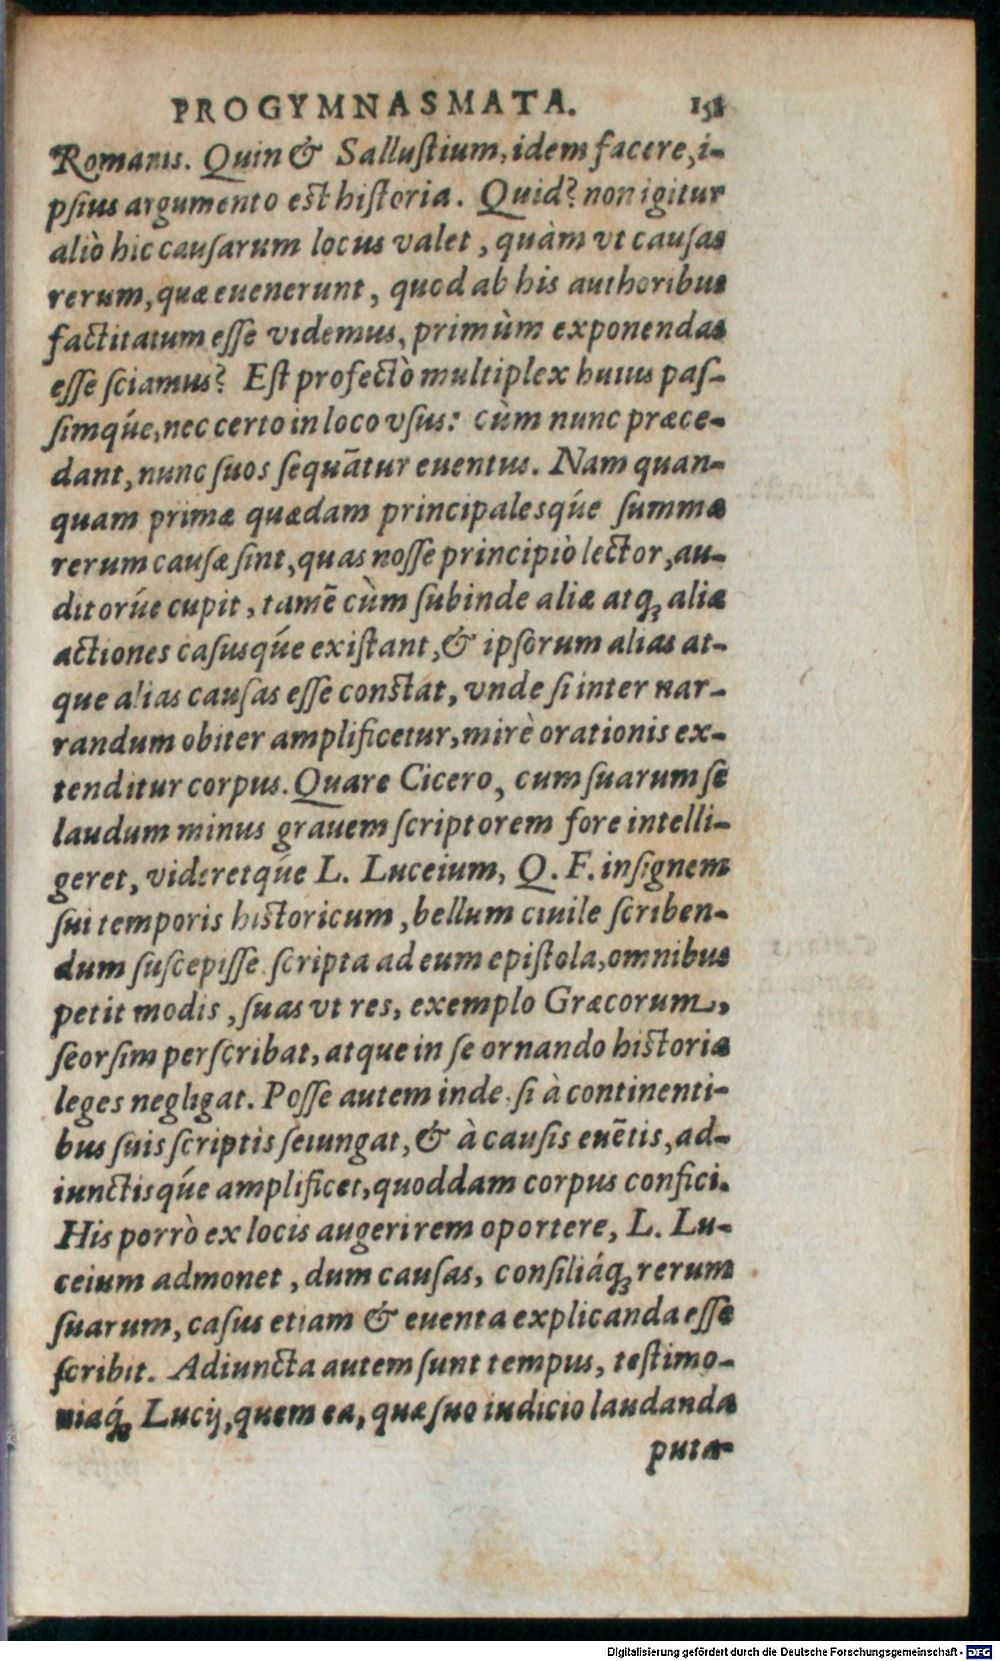 PROGYMNASMATA. 151
Romanis. Quin & Salluſtium, idem facere, i-
pſius argumento eſt hiſtoria. Quid? non igitur
aliò hic cauſarum locus valet, quàm vt cauſas
rerum, quæ euenerunt, quod ab his authoribus
factitatum eſſe videmus, primùm exponendas
eſſe ſciamus? Eſt profectò multiplex huius paſ-
ſimq́ue, nec certo in loco vſus: cùm nunc præce-
dant, nunc ſuos ſequātur euentus. Nam quan-
quam primæ quædam principalesq́ue ſummæ
rerum cauſæ ſint, quas noſſe principiò lector, au-
ditorúe cupit, tamē cùm ſubinde aliæ atqꝫ aliæ
actiones caſusq́ue exiſtant, & ipſorum alias at-
que alias cauſas eſſe conſtat, vnde ſi inter nar-
randum obiter amplificetur, mirè orationis ex-
tenditur corpus. Quare Cicero, cum ſuarum ſe
laudum minus grauem ſcriptorem fore intelli-
geret, videretq́ue L. Luceium, Q. F. inſignem
ſui temporis hiſtoricum, bellum ciuile ſcriben-
dum ſuſcepiſſe. ſcripta ad eum epiſtola, omnibus
petit modis, ſuas vt res, exemplo Græcorum,
ſeorſim perſcribat, atque in ſe ornando hiſtoriæ
leges negligat. Poſſe autem inde. ſi à continenti-
bus ſuis ſcriptis ſeiungat, & à cauſis euētis, ad-
iunctisq́ue amplificet, quoddam corpus confici.
His porrò ex locis augeri rem oportere, L. Lu-
ceium admonet, dum cauſas, conſiliáqꝫ rerum
ſuarum, caſus etiam & euenta explicanda eſſe
ſcribit. Adiuncta autem ſunt tempus, teſtimo-
niaq́ꝫ Lucij, quem ea, quæ ſuo iudicio laudanda
puta-
Digitalisierung gefördert durch die Deutsche Forschungsgemeinschaft - DFG